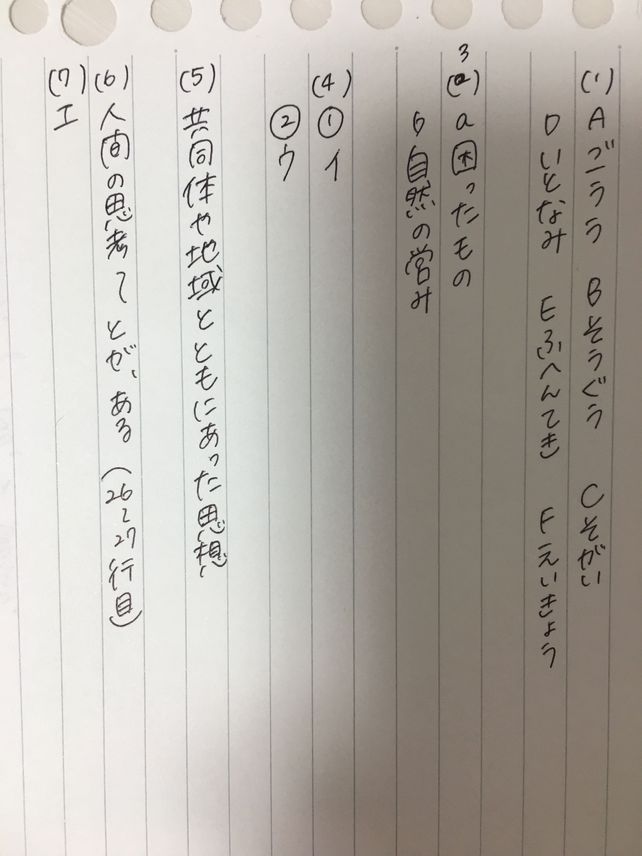 (1) A ごうう B そうぐう C そがい
D いとなみ E ふへんてき F えいきょう
(3) a 困ったもの
b 自然の営み
(4) ① イ
② ウ
(5) 共同体や地域とともにあった思想
(6) 人間の思考〜とが、ある (26〜27行目)
(7) エ